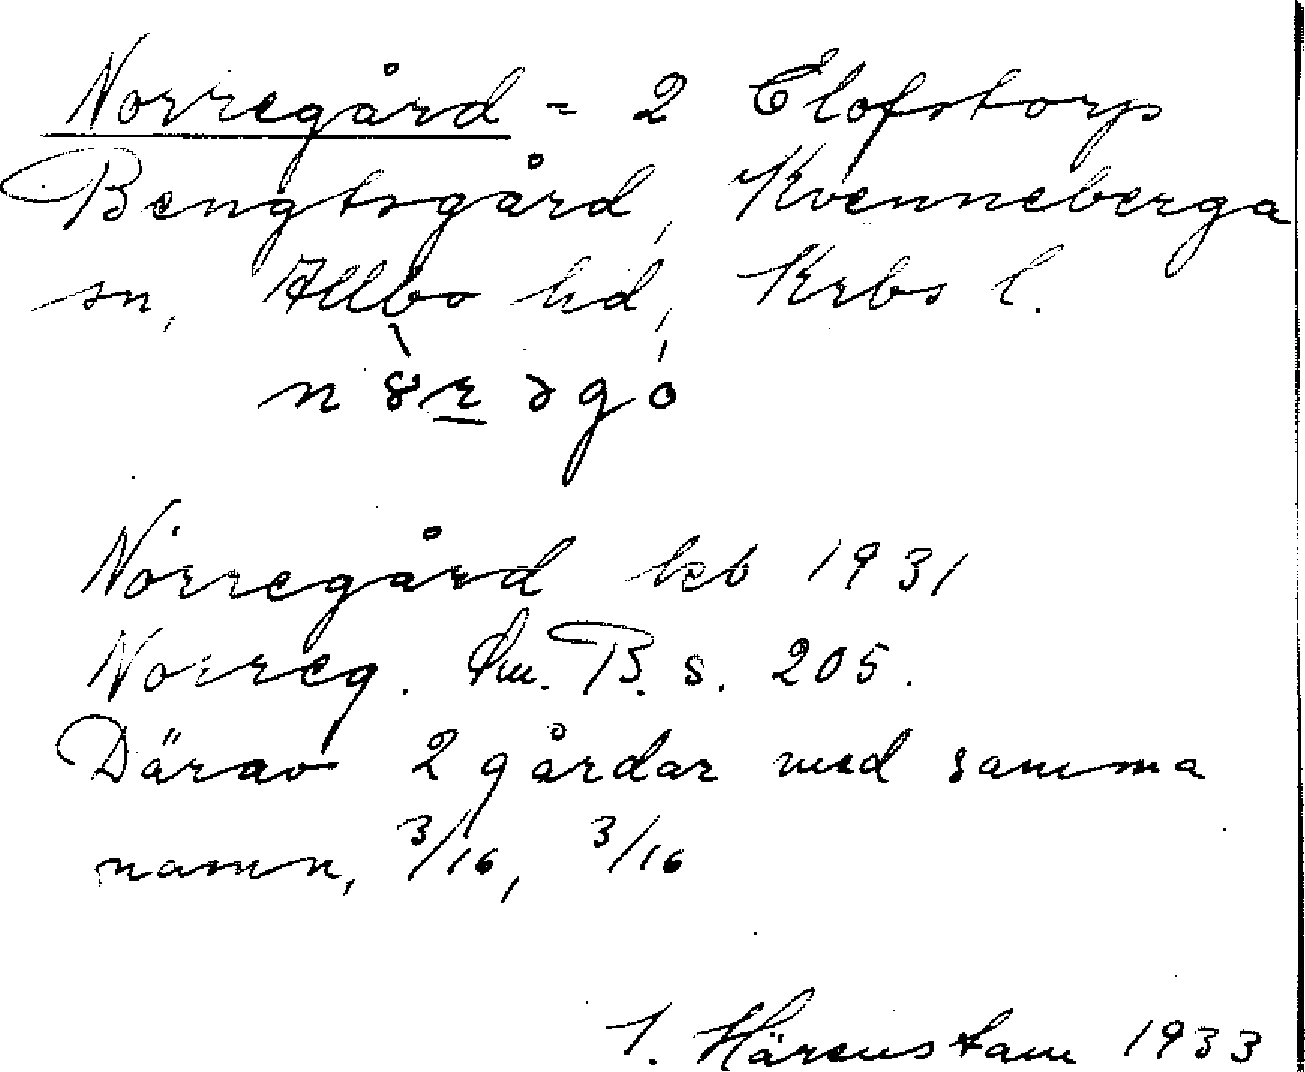 Norregård = 2 Elofstorp
Bengtsgård, Kvenneberga
sn, Allbo hd, Krbs l.
Norregård kb 1931
Norreg. Öm. B. s. 205.
Därav 2 gårdar med samma
namn, 3/16, 3/16
Härenstam 1933